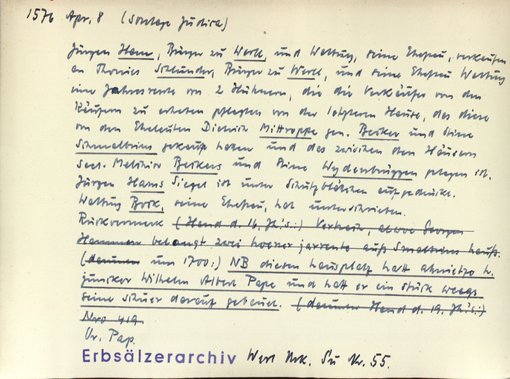 1576 Apr. 8 (Sontags Judica)
Jürgen Hane, Bürger zu Werl, und Walburg, seine Ehefrau, verkaufen
an Thonies Schlunder, Bürger zu Werl, und seine Ehefrau Walburg
eine Jahresrente von 2 Hühnern, die die Verkäufer von den
Käufern zu erheben pflegten von der letzteren Hause, das diese
von den Eheleuten Diederich Mittroppe gen. Berker und Stine
Schmeltzins gekauft haben und das zwischen den Häusern
sees. Melchior Berkers und Stine Wydenbrüggen gelegen ist.
Jürgen Hanes Siegel ist unter Schutzblättchen aufgedrückt.
Walburg Bork, seine Ehefrau, hat unterschrieben.
Rückvermerk (Hand d. 16. Jh's.:)
belangt zwei hoener jarrente auß hauß.
um 1700:) NB diesen hausplatz hatt h.
juncker Wilhelm Albert Pape und hatt er ein stück wegs
seine schuer darauf gebauet. (darunter Hand d. 19. Jh's.:)
Nro 419
Or. Pap.
Erbsälzerarchiv Werl Urk. Nr. 55.